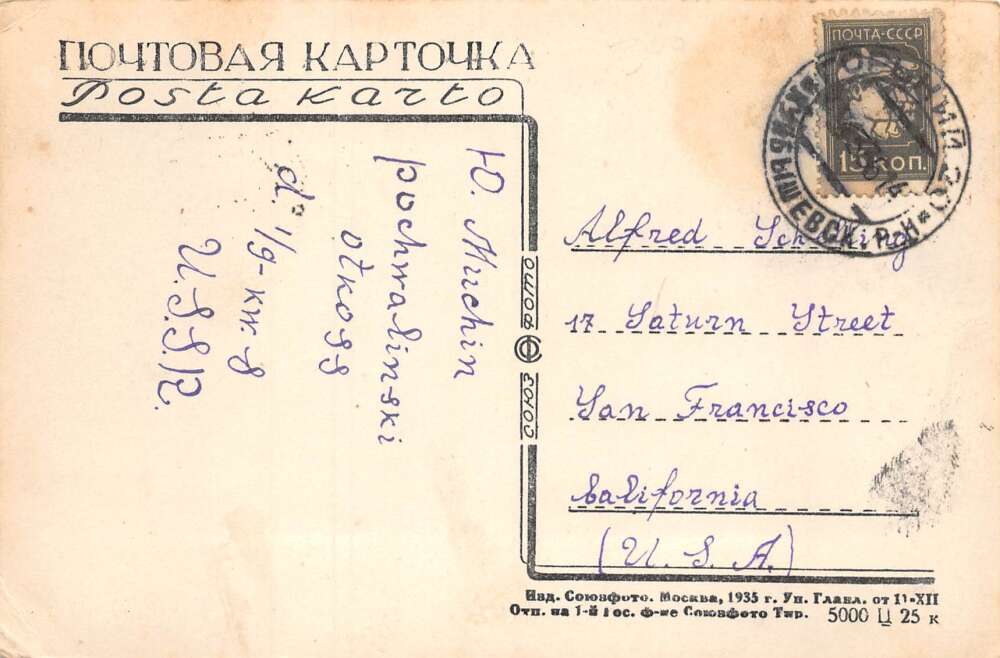 ПОЧТОВАЯ КАРТОЧКА
Poŝta Karto
ПОЧТА-СССР
15 КОП.
Ю. Muchin
pochwalinski
otkoss
d. 1/9-kw. 8
U.S.S.R.
СОЮЗ ФОТО
Alfred
17 Saturn Street
San Francisco
California
(U. S. A.)
Изд. Союзфото. Москва, 1935 г. Уп. Главл. от 11-XII
Отп. на 1-й ф-ке Союзфото Тир. 5000 Ц 25 к